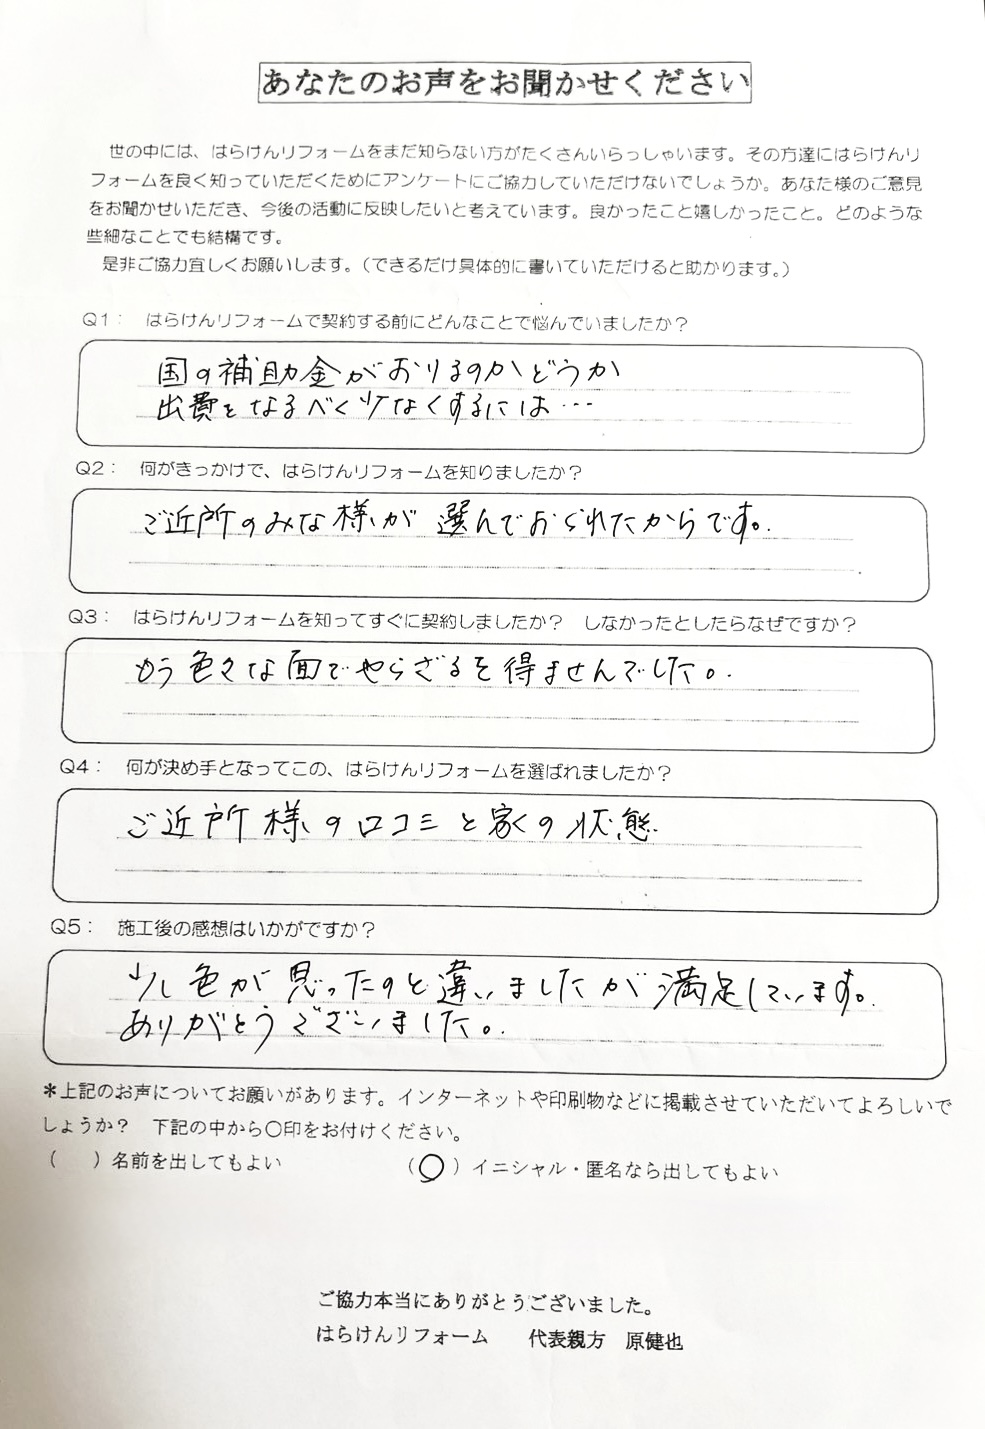 あなたのお声をお聞かせください
世の中には、はらけんリフォームをまだ知らない方がたくさんいらっしゃいます。その方達にはらけんリ
フォームを良く知っていただくためにアンケートにご協力していただけないでしょうか。あなた様のご意見
をお聞かせいただき、今後の活動に反映したいと考えています。良かったこと嬉しかったこと。どのような
些細なことでも結構です。
是非ご協力宜しくお願いします。(できるだけ具体的に書いていただけると助かります。)
Q1: はらけんリフォームで契約する前にどんなことで悩んでいましたか?
国の補助金がおりるのかどうか
出費をなるべく少なくするには…
Q2: 何がきっかけで、はらけんリフォームを知りましたか?
ご近所のみな様が選んでおられたからです。
Q3: はらけんリフォームを知ってすぐに契約しましたか? しなかったとしたらなぜですか?
もう色々な面でやらざるを得ませんでした。
Q4: 何が決め手となってこの、はらけんリフォームを選ばれましたか?
ご近所様の口コミと家の状態
Q5: 施工後の感想はいかがですか?
少し色が思ったのと違いましたが満足しています。
ありがとうございました。
*上記のお声についてお願いがあります。インターネットや印刷物などに掲載させていただいてよろしいで
しょうか? 下記の中から○印をお付けください。
( )名前を出してもよい (○)イニシャル・匿名なら出してもよい
ご協力本当にありがとうございました。
はらけんリフォーム 代表親方 原健也